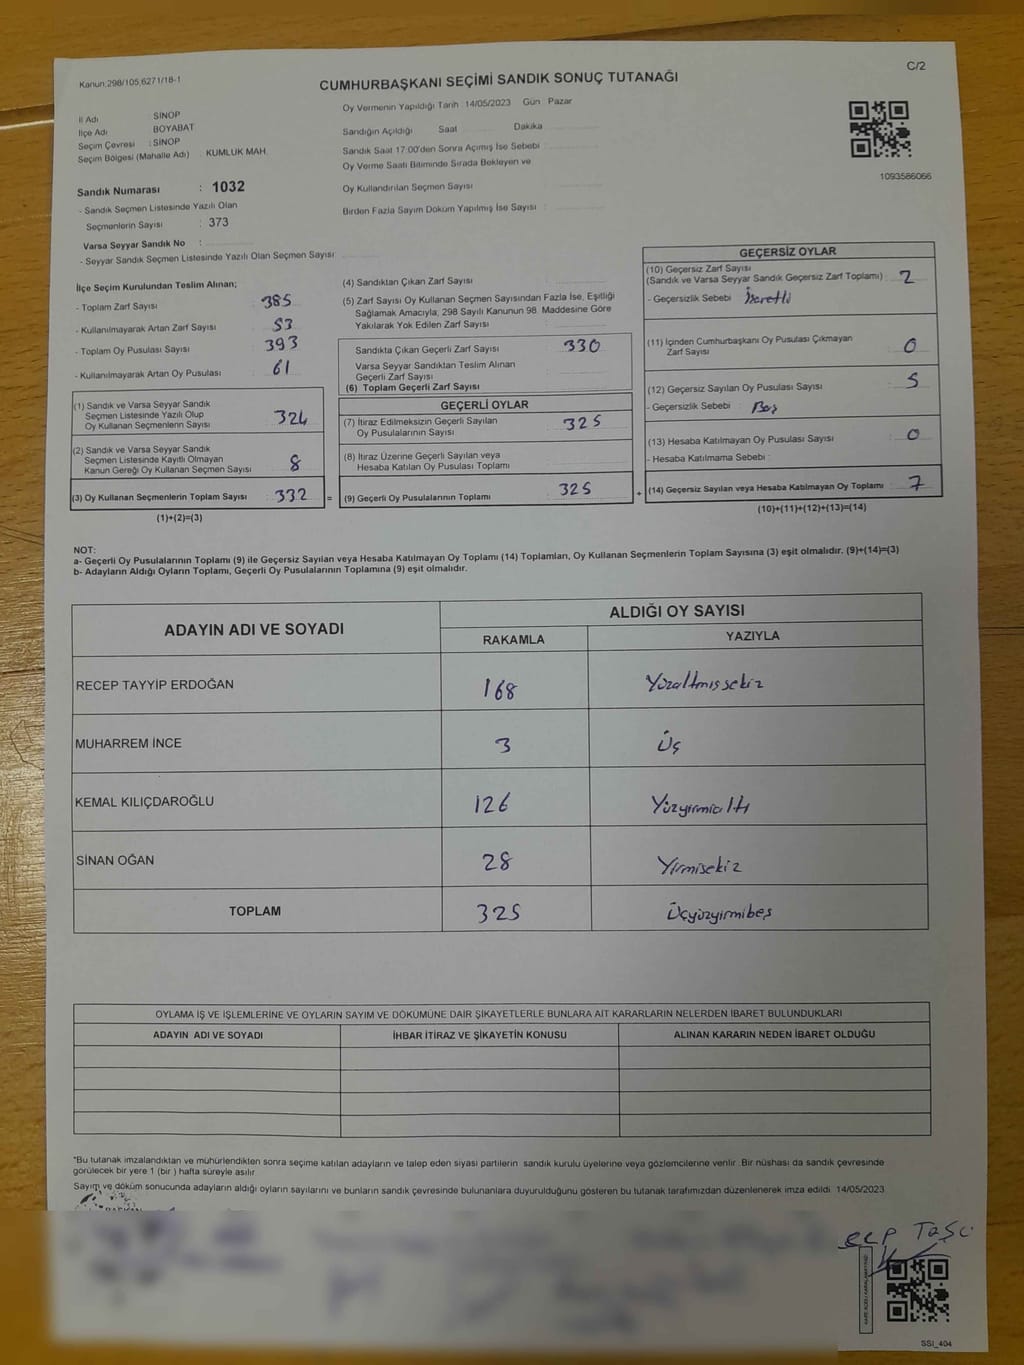 Kanun:298/105,6271/18-1
C/2
CUMHURBAŞKANI SEÇİMİ SANDIK SONUÇ TUTANAĞI
İl Adı SİNOP
İlçe Adı BOYABAT
Seçim Çevresi : SİNOP
Seçim Bölgesi (Mahalle Adı) : KUMLUK MAH.
Sandık Numarası : 1032
- Sandık Seçmen Listesinde Yazılı Olan
Seçmenlerin Sayısı : 373
Varsa Seyyar Sandık No :
- Seyyar Sandık Seçmen Listesinde Yazılı Olan Seçmen Sayısı
Oy Vermenin Yapıldığı Tarih :14/05/2023 Gün : Pazar
Sandığın Açıldığı Saat Dakika
Sandık Saat 17:00'den Sonra Açımış İse Sebebi :
Oy Verme Saati Bitiminde Sırada Bekleyen ve
Oy Kullandırılan Seçmen Sayısı
Birden Fazla Sayım Döküm Yapılmış İse Sayısı :
1093586066
İlçe Seçim Kurulundan Teslim Alınan;
- Toplam Zarf Sayısı 385
- Kullanılmayarak Artan Zarf Sayısı 53
- Toplam Oy Pusulası Sayısı 393
- Kullanılmayarak Artan Oy Pusulası 61
(1) Sandık ve Varsa Seyyar Sandık
Seçmen Listesinde Yazılı Olup
Oy Kullanan Seçmenlerin Sayısı : 324
(2) Sandık ve Varsa Seyyar Sandık
Seçmen Listesinde Kayıtlı Olmayan
Kanun Gereği Oy Kullanan Seçmen Sayısı : 8
(3) Oy Kullanan Seçmenlerin Toplam Sayısı : 332 =
(1)+(2)=(3)
(4) Sandıktan Çıkan Zarf Sayısı :
(5) Zarf Sayısı Oy Kullanan Seçmen Sayısından Fazla İse, Eşitliği
Sağlamak Amacıyla, 298 Sayılı Kanunun 98. Maddesine Göre
Yakılarak Yok Edilen Zarf Sayısı :
Sandıkta Çıkan Geçerli Zarf Sayısı : 330
Varsa Seyyar Sandıktan Teslim Alınan
Geçerli Zarf Sayısı
(6) Toplam Geçerli Zarf Sayısı
GEÇERLİ OYLAR
(7) İtiraz Edilmeksizin Geçerli Sayılan
Oy Pusulalarının Sayısı : 325
(8) İtiraz Üzerine Geçerli Sayılan veya
Hesaba Katılan Oy Pusulası Toplamı :
(9) Geçerli Oy Pusulalarının Toplamı : 325 +
GEÇERSİZ OYLAR
(10) Geçersiz Zarf Sayısı
(Sandık ve Varsa Seyyar Sandık Geçersiz Zarf Toplamı) : 2
- Geçersizlik Sebebi : İşaretli
(11) İçinden Cumhurbaşkanı Oy Pusulası Çıkmayan
Zarf Sayısı : 0
(12) Geçersiz Sayılan Oy Pusulası Sayısı : 5
- Geçersizlik Sebebi : Boş
(13) Hesaba Katılmayan Oy Pusulası Sayısı : 0
- Hesaba Katılmama Sebebi :
(14) Geçersiz Sayılan veya Hesaba Katılmayan Oy Toplamı : 7
(10)+(11)+(12)+(13)=(14)
NOT:
a- Geçerli Oy Pusulalarının Toplamı (9) ile Geçersiz Sayılan veya Hesaba Katılmayan Oy Toplamı (14) Toplamları, Oy Kullanan Seçmenlerin Toplam Sayısına (3) eşit olmalıdır. (9)+(14)=(3)
b- Adayların Aldığı Oyların Toplamı, Geçerli Oy Pusulalarının Toplamına (9) eşit olmalıdır.
ADAYIN ADI VE SOYADI ALDIĞI OY SAYISI
RAKAMLA YAZIYLA
RECEP TAYYİP ERDOĞAN 168 Yüzaltmışsekiz
MUHARREM İNCE 3 Üç
KEMAL KILIÇDAROĞLU 126 Yüzyirmialtı
SİNAN OĞAN 28 Yirmisekiz
TOPLAM 325 Üçyüzyirmibeş
OYLAMA İŞ VE İŞLEMLERİNE VE OYLARIN SAYIM VE DÖKÜMÜNE DAİR ŞİKAYETLERLE BUNLARA AİT KARARLARIN NELERDEN İBARET BULUNDUKLARI
ADAYIN ADI VE SOYADI İHBAR İTİRAZ VE ŞİKAYETİN KONUSU ALINAN KARARIN NEDEN İBARET OLDUĞU
*Bu tutanak imzalandıktan ve mühürlendikten sonra seçime katılan adayların ve talep eden siyasi partilerin sandık kurulu üyelerine veya gözlemcilerine verilir. Bir nüshası da sandık çevresinde
görülecek bir yere 1 (bir ) hafta süreyle asılır
Sayım ve döküm sonucunda adayların aldığı oyların sayılarını ve bunların sandık çevresinde bulunanlara duyurulduğunu gösteren bu tutanak tarafımızdan düzenlenerek imza edildi. 14/05/2023
SSI_404